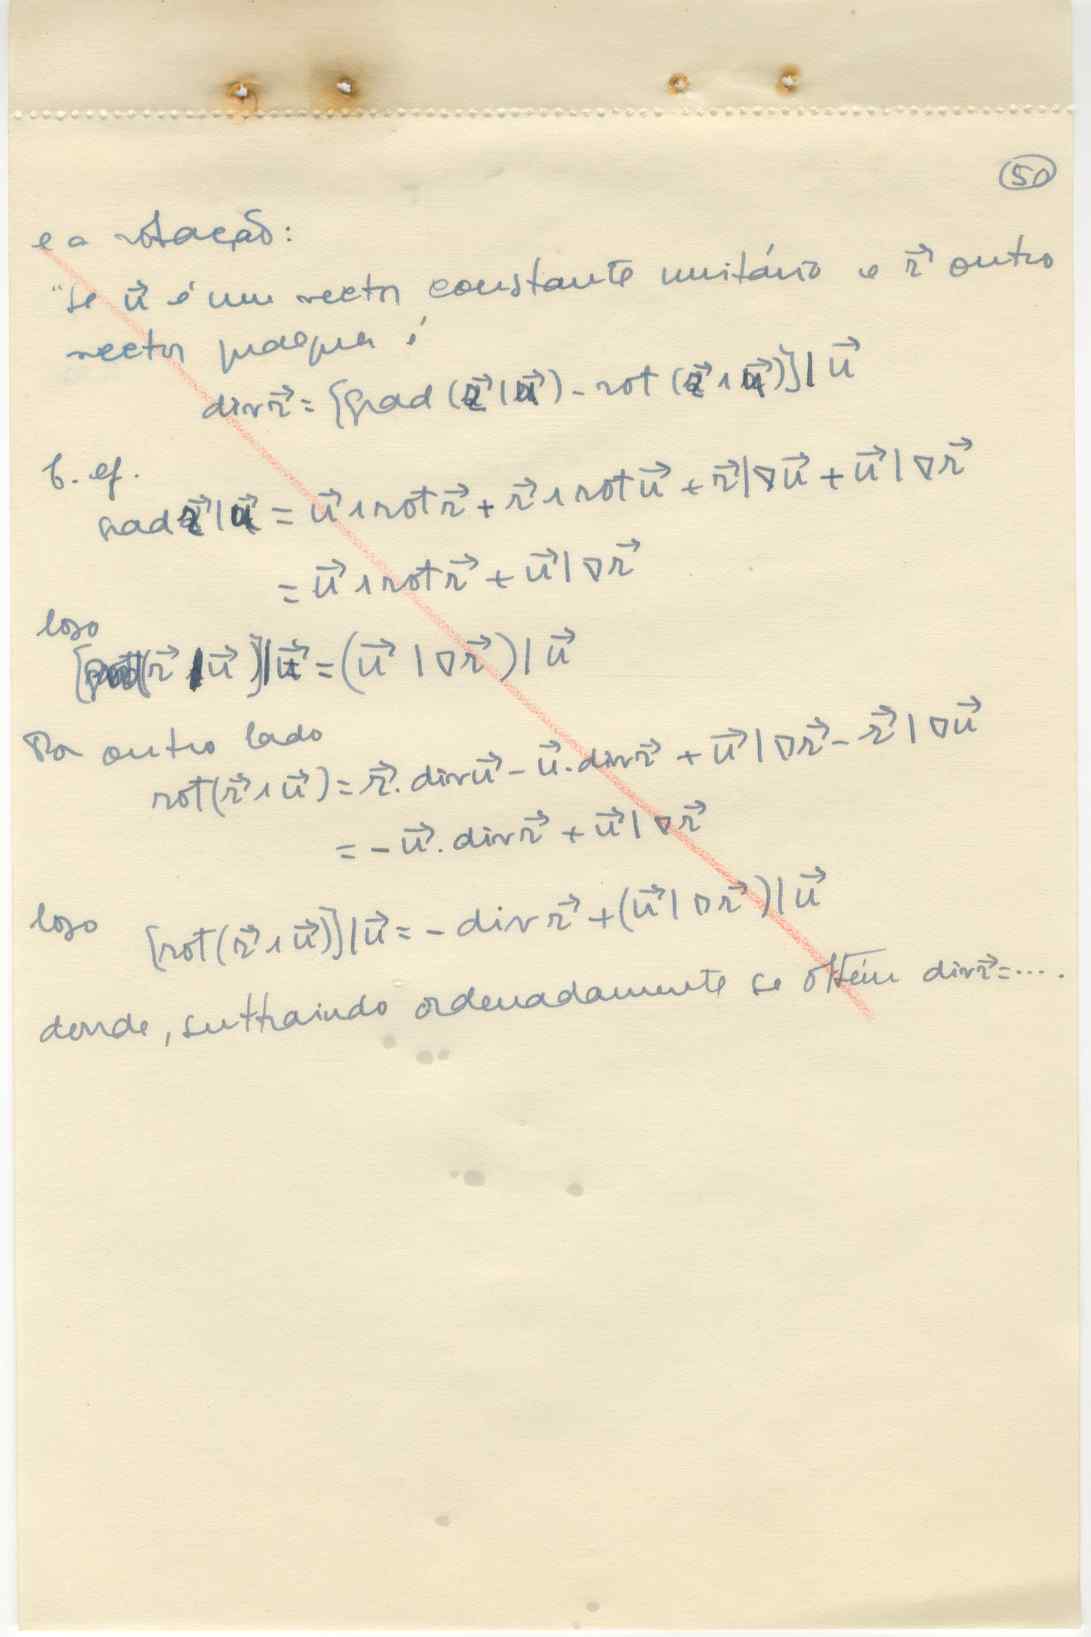 50
e a rotação:
"Se u⃗ é um vector constante unitário e r⃗ outro
vector qualquer é
div r⃗ = [grad (r⃗ | u⃗) - rot (r⃗ ∧ u⃗)] | u⃗
C. ef.
grad r⃗ | u⃗ = u⃗ ∧ rot r⃗ + r⃗ ∧ rot u⃗ + r⃗ | ∇u⃗ + u⃗ | ∇r⃗
= u⃗ ∧ rot r⃗ + u⃗ | ∇r⃗
logo
[grad (r⃗ | u⃗)] | u⃗ = (u⃗ | ∇r⃗) | u⃗
Por outro lado
rot (r⃗ ∧ u⃗) = r⃗ . div u⃗ - u⃗ . div r⃗ + u⃗ | ∇r⃗ - r⃗ | ∇u⃗
= - u⃗ . div r⃗ + u⃗ | ∇r⃗
logo [rot (r⃗ ∧ u⃗)] | u⃗ = - div r⃗ + (u⃗ | ∇r⃗) | u⃗
donde, subtraindo ordenadamente se obtém div r⃗ = ....